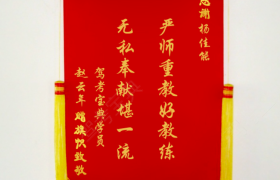 感谢杨佳能
严师重教好教练
无私奉献堪一流
驾考宝典学员
赵云年赠旗帜致敬